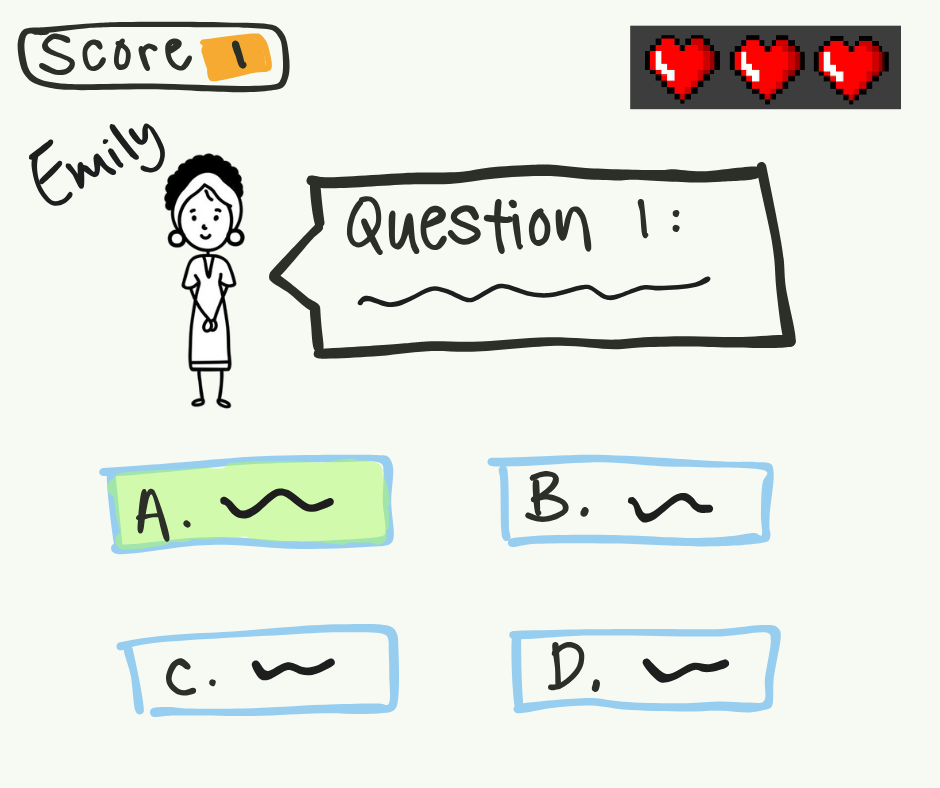 Score 1
Emily
Question 1:
A.
B.
C.
D.